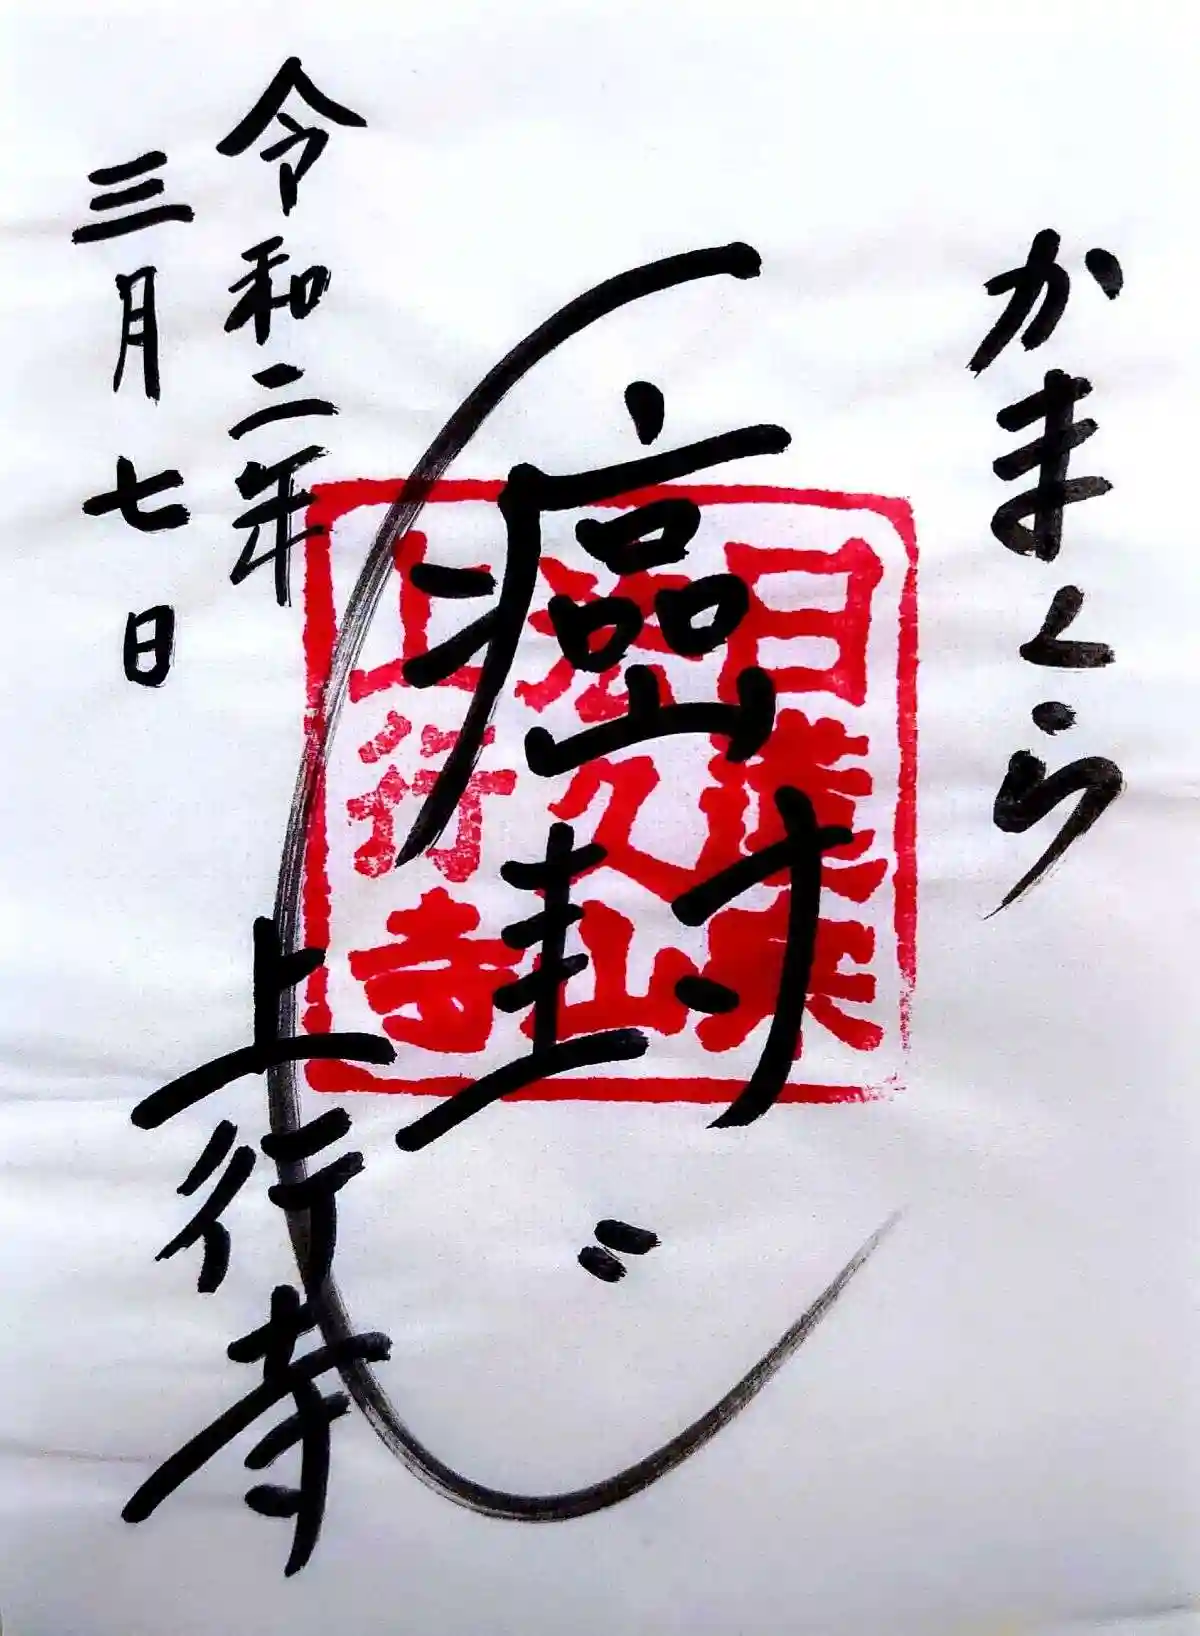 かまくら
癌封じ
日蓮宗
法久山
上行寺
令和二年
三月七日
上行寺